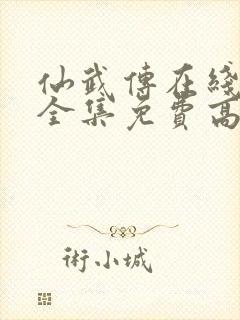 仙武傳在綫
全集免費高
術小城